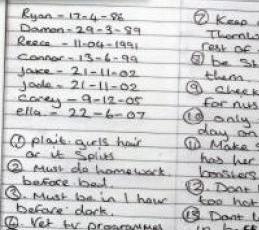 Ryan - 17-4-86
Damon - 29-3-89
Reece - 11-04-1991
Connor - 13-6-99
Jake - 21-11-02
Jade - 21-11-02
Corey - 9-12-05
ella - 22-6-07
① plait girls hair
or it splits
② Must do homework
before bed.
③ Must be in 1 hour
before dark.
④ Vet tv programmes
⑦ Keep
Thornl
rest of
⑧ be St
them
⑨ Check
for nus
⑩ only
day on
⑪ Make S
has her
boosters
⑫ Dont
too hot
⑬ Dont l